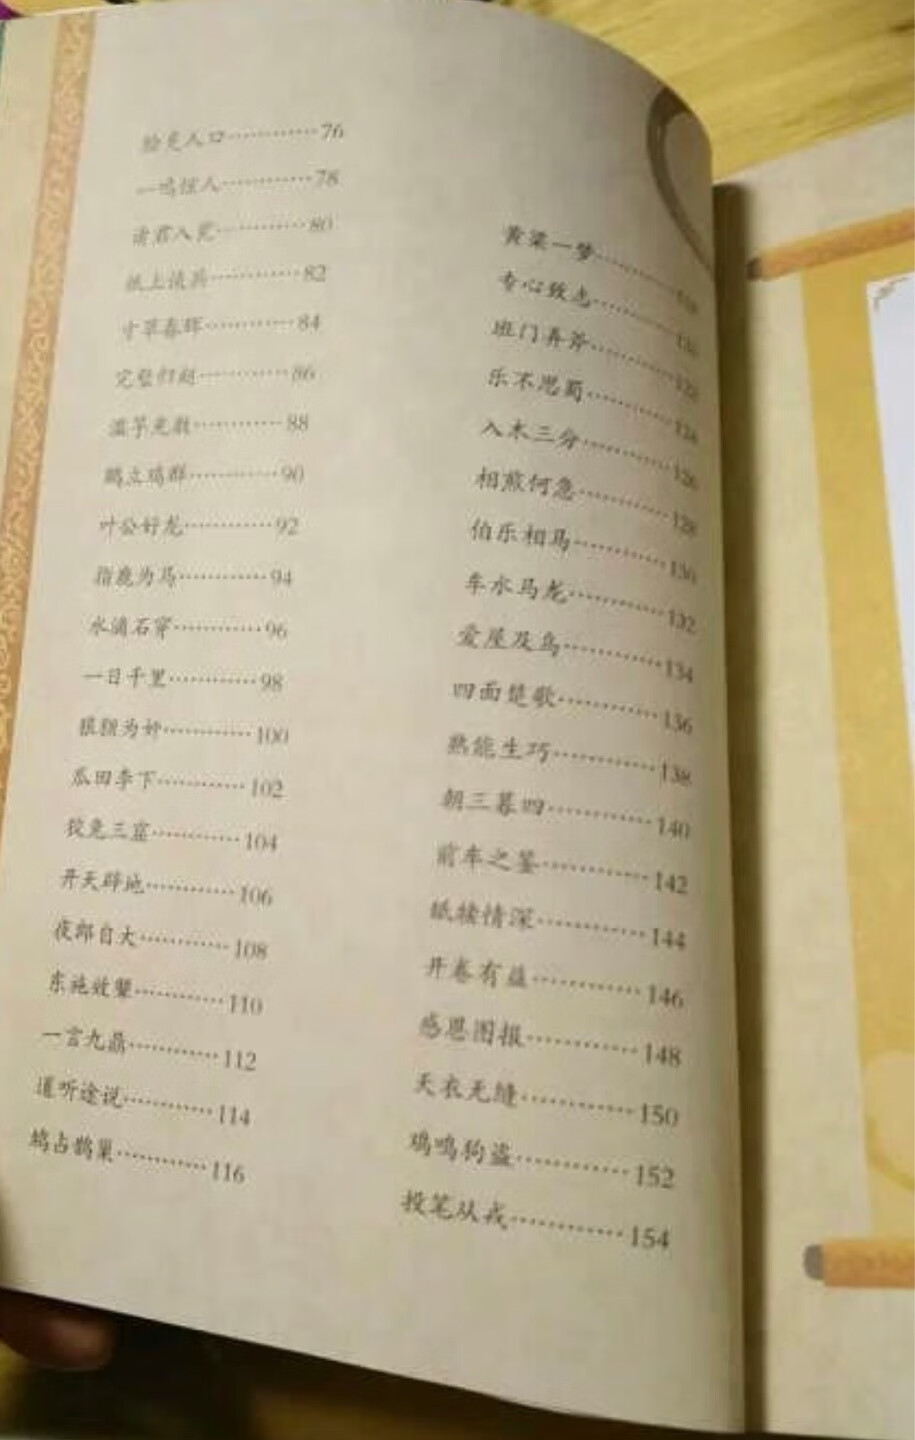 脍炙人口…………76
一鸣惊人…………78
请君入瓮…………80
纸上谈兵…………82
寸草春晖…………84
完璧归赵…………86
滥竽充数…………88
鹤立鸡群…………90
叶公好龙…………92
指鹿为马…………94
水滴石穿…………96
一日千里…………98
狼狈为奸…………100
瓜田李下…………102
狡兔三窟…………104
开天辟地…………106
夜郎自大…………108
东施效颦…………110
一言九鼎…………112
道听途说…………114
鸠占鹊巢…………116
黄粱一梦…………
专心致志…………
班门弄斧…………122
乐不思蜀…………124
入木三分…………126
相煎何急…………128
伯乐相马…………130
车水马龙…………132
爱屋及乌…………134
四面楚歌…………136
熟能生巧…………138
朝三暮四…………140
前车之鉴…………142
舐犊情深…………144
开卷有益…………146
感恩图报…………148
天衣无缝…………150
鸡鸣狗盗…………152
投笔从戎…………154